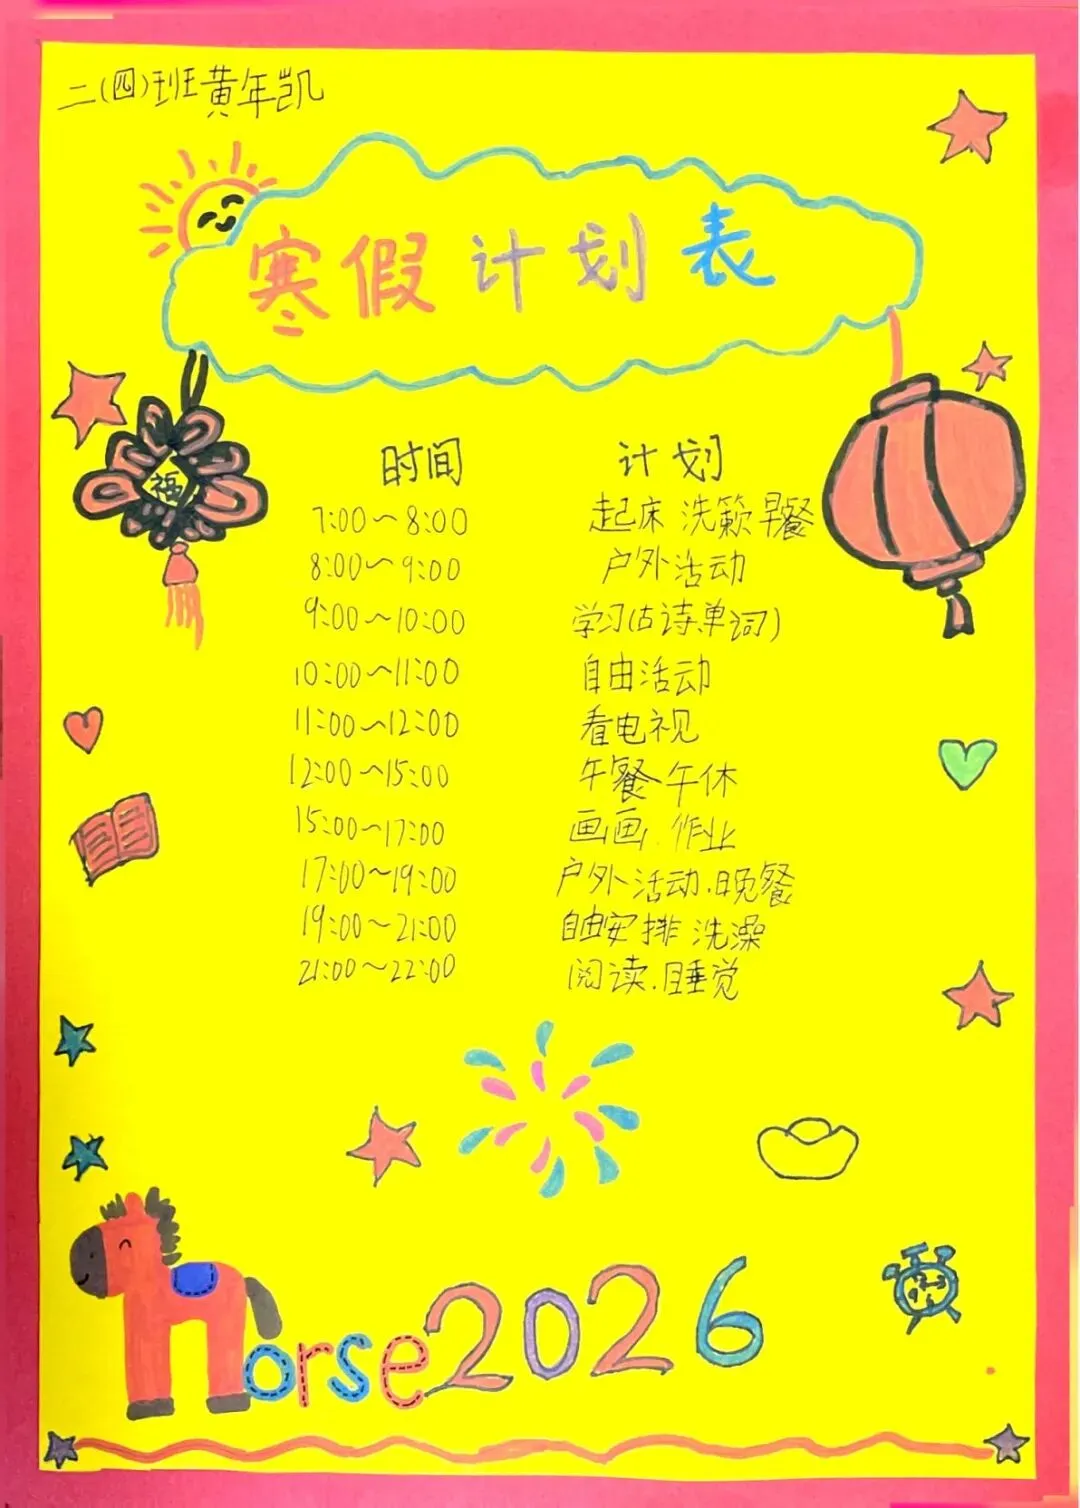 二(四)班黄年凯
寒假计划表
福
时间 计划
7:00~8:00 起床 洗簌 早餐
8:00~9:00 户外活动
9:00~10:00 学习(古诗.单词)
10:00~11:00 自由活动
11:00~12:00 看电视
12:00~15:00 午餐 午休
15:00~17:00 画画.作业
17:00~19:00 户外活动.晚餐
19:00~21:00 自由安排 洗澡
21:00~22:00 阅读.睡觉
Horse2026